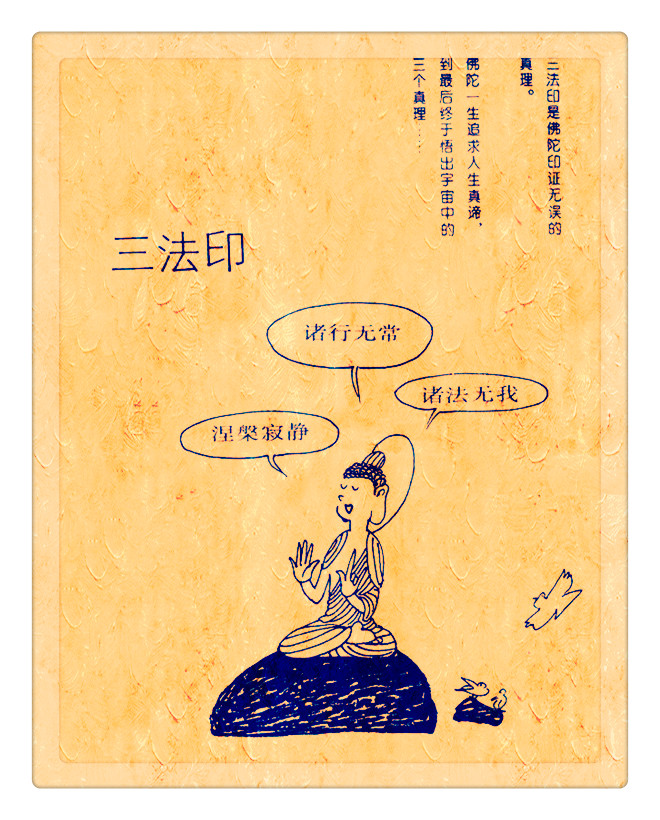 三法印是佛陀印证无误的
真理。
佛陀一生追求人生真谛，
到最后终于悟出宇宙中的
三个真理……
三法印
诸行无常
诸法无我
涅槃寂静